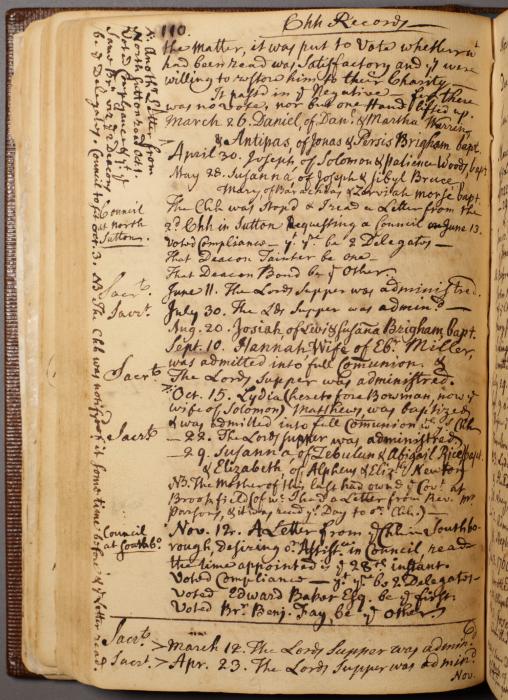 110.
Chh Records
the matter, it was put to Vote whether wt
had been read was Satisfactory and yy were
willing to restore him to their Charity —
It passd in ye Negative for there
was no Vote, nor but one Hand lifted up.
March 26. Daniel of Danl. & Martha Warren
& Antipas, of Jonas & Persis Brigham bapt.
April 30. Joseph of Solomon & Patience Woods bapt
May 28. Susanna of Joseph & Sibyl Bruce
Mary of Barachias & Zerviah Morse bapt.
The Chh was Stopd & I read a Letter from the
2d Chh in Sutton Requesting a Council on June 13.
Voted Compliance — yt yr be 2 Delegates —
That Deacon Tainter be one —
That Deacon Bond be ye Other.
June 11. The Lords Supper was administred.
July 30. The Lds Supper was admind. —
Aug. 20. Josiah, of Levi & Susana Brigham, bapt.
Sept. 10. Hannah Wife of Ebr. Miller,
was admitted into full Comunion, &
The Lords Supper was administred.
Oct. 15. Lydia (heretofore Bowman, now ye
wife of Solomon) Matthews was baptized
& was admitted into full Comunion in ys Chh
— 22. The Lords Supper was administred
— 29. Susanna of Zebulun & Abigail Rice bapt
& Elizabeth of Alpheus & Eliz. Newton
NB. The Mother of this last had ownd ye Covt. at
Brookfield (of wc I had a Letter from Rev. Mr
Parsons, & it was read ys Day to or Chh.) —
Nov. 12. A Letter from ye Chh in Southbo-
rough, desiring or Assistce in Council read
the time appointed is ye 28th instant.
Voted Compliance — yt yr be 2 Delegates
Voted Edward Baker Esq. be ye first.
Voted Br. Benj. Fay, be ye Other.
March 12. The Lords Supper was admind
Apr. 23. The Lords Supper was admind
Nov.
Council
at North
Sutton.
Sacrt.
Sacrt.
Sacrt.
Sacrt.
Council
at Southbo.
Sacrt.
Sacrt.
Another Letter from
North Sutton read Oct. 1.
Voted Compliance & yt ye
Same Br. viz ye 2 Deacons
be ye Delegates. Council to sit Oct. 3. NB. The Chh was notifyd of it some time before ye Letter read.